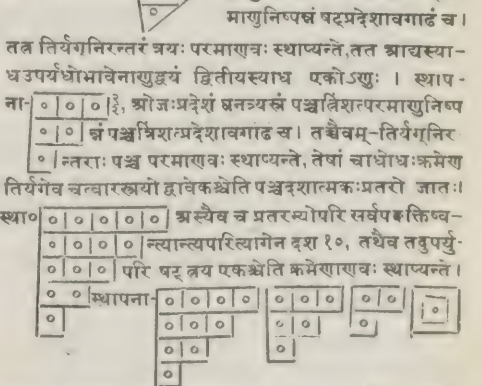 माणुनिष्पन्नं षट्प्रदेशावगाढं च।
तत्र तिर्यग्निरन्तरं त्रयः परमाणवः स्थाप्यन्ते,तत आद्यस्या-
धउपर्यधोभावेनाणुद्वयं द्वितीयस्याध एकोऽणुः । स्थाप-
ना- ३, ओजःप्रदेशं घनत्र्यस्रं पञ्चत्रिंशत्परमाणुनिष्प
न्नं पञ्चत्रिंशत्प्रदेशावगाढं च। तच्चैवम्-तिर्यग्निर
न्तराः पञ्च परमाणवः स्थाप्यन्ते, तेषां चाधोधःक्रमेण
तिर्यगेव चत्वारस्त्रयो द्वावेकश्चेति पञ्चदशात्मकःप्रतरो जातः।
स्था० अस्यैव च प्रतरस्योपरि सर्वपङ्क्तिष्व-
न्त्यान्त्यपरित्यागेन दश १०, तथैव तदुपर्यु-
परि षट् त्रय एकश्चेति क्रमेणाणवः स्थाप्यन्ते।
स्थापना-